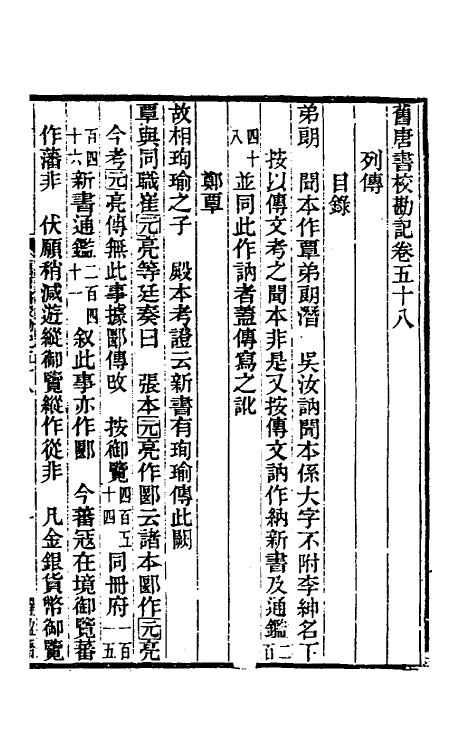 舊唐書校勘記卷五十八
列傳
目錄
弟朗　聞本作覃弟朗潛　吳汝訥聞本係大字不附李紳名下
按以傳文考之聞本非是又按傳文訥作納新書及通鑑二百
四十八並同此作訥者蓋傳寫之訛
鄭覃
故相珣瑜之子　殿本考證云新書有珣瑜傳此闕
覃與同職崔元亮等廷奏曰　張本元亮作郾云諸本郾作元亮
今考元亮傳無此事據郾傳改　按御覽四百五十四同冊府一百五
百四十六新書通鑑二百四十一敘此事亦作郾　今蕃寇在境御覽蕃
作藩非　伏願稍減遊縱御覽縱作從非　凡金銀貨幣御覽